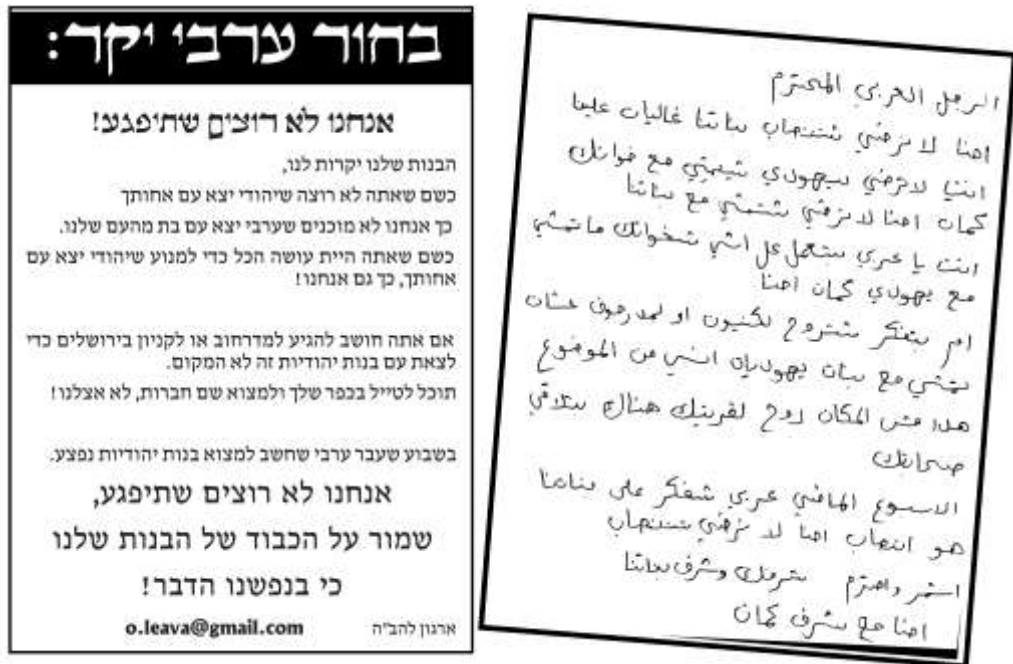 בחור ערבי יקר:
אנחנו לא רוצים שתיפגע!
הבנות שלנו יקרות לנו,
כשם שאתה לא רוצה שיהודי יצא עם אחותך
כך אנחנו לא מוכנים שערבי יצא עם בת מהעם שלנו.
כשם שאתה היית עושה הכל כדי למנוע שיהודי יצא עם
אחותך, כך גם אנחנו!
אם אתה חושב להגיע למדרחוב או לקניון בירושלים כדי
לצאת עם בנות יהודיות זה לא המקום.
תוכל לטייל בכפר שלך ולמצוא שם חברות, לא אצלנו!
בשבוע שעבר ערבי שחשב למצוא בנות יהודיות נפצע.
אנחנו לא רוצים שתיפגע,
שמור על הכבוד של הבנות שלנו
כי בנפשנו הדבר!
ארגון להב"ה o.leava@gmail.com
الرجل العربي المحترم
احنا لا نرضي بناتنا غاليات علينا
لا ترضي مع خواتك
كمان احنا لا نرضي مع بناتنا
انت يا عربي
مع يهودي كمان احنا
بتفكر او عشان
مع بنات يهوديات من الموضوع
هدا مش المكان روح لقريتك هناك بتلاقي
صحابتك
الاسبوع الماضي عربي على بناتنا
هو احنا لا نرضي
واحترم وشرف بناتنا
احنا كمان